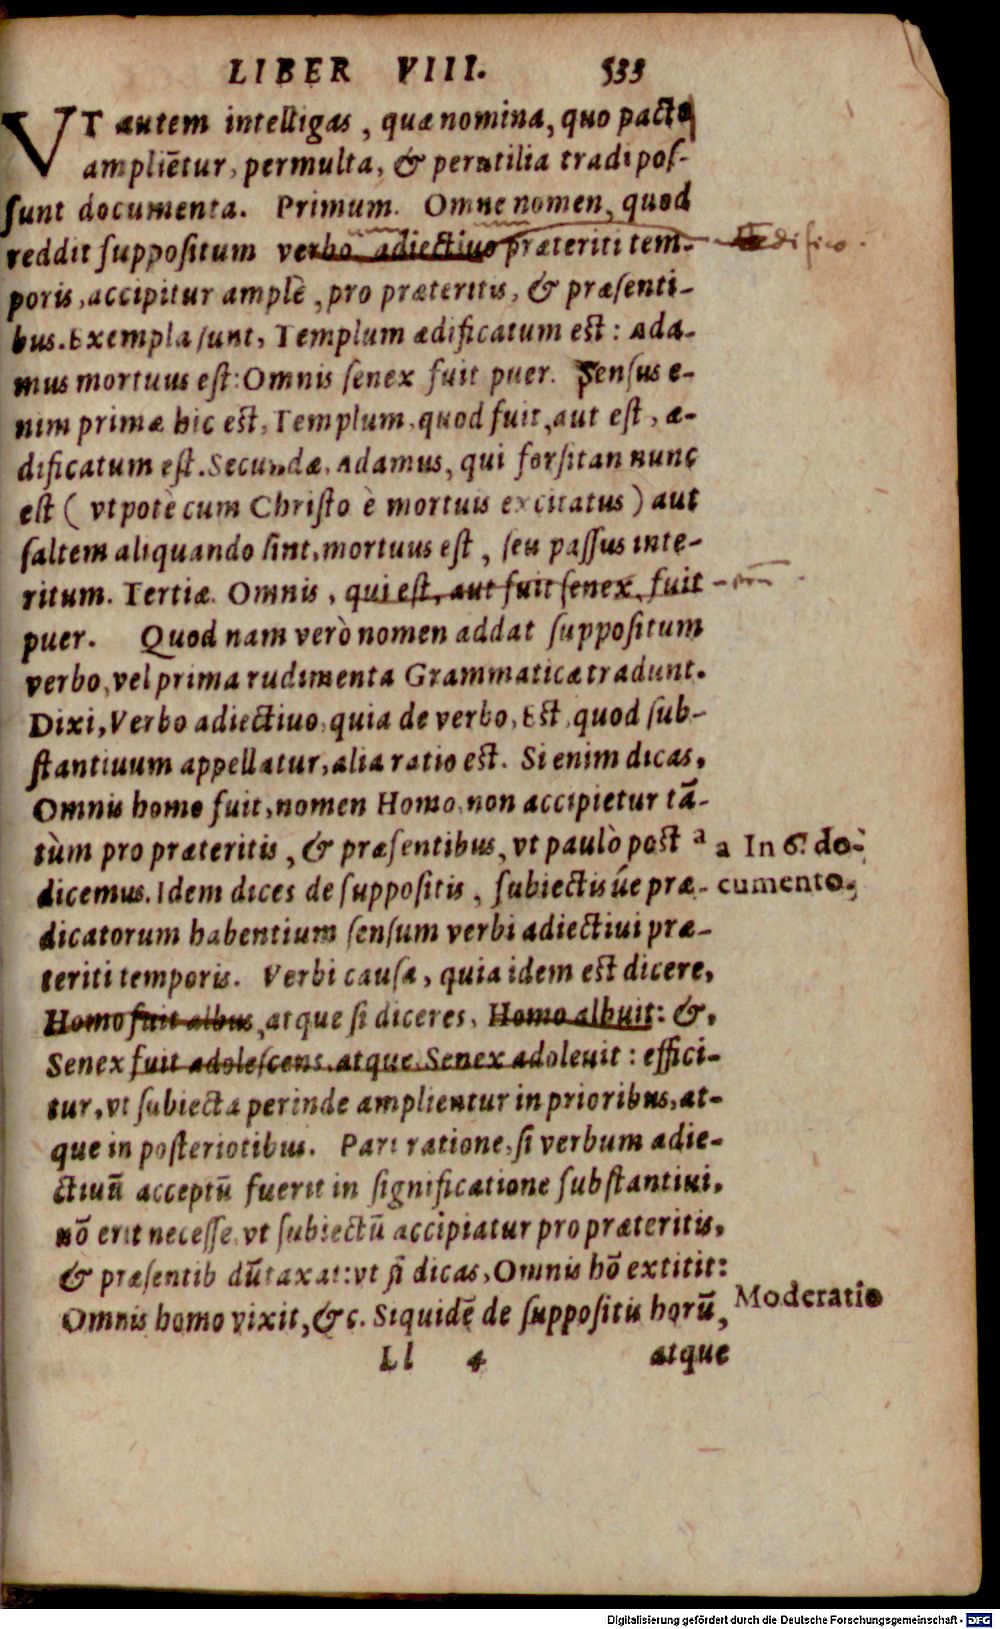 LIBER VIII. 533
VT autem intelligas, quæ nomina, quo pacto
ampliētur, permulta, & perutilia tradi pos-
sunt documenta. Primum. Omne nomen, quod
reddit suppositum verbo adiectiuo præteriti tem-
poris, accipitur amplè, pro præteritis, & præsenti-
bus. Exempla sunt, Templum ædificatum est: Ada-
mus mortuus est: Omnis senex fuit puer. Sensus e-
nim primæ hic est, Templum, quod fuit, aut est, æ-
dificatum est. Secundæ, Adamus, qui forsitan nunc
est (vtpotè cum Christo è mortuis excitatus) aut
saltem aliquando fuit, mortuus est, seu passus inte-
ritum. Tertiæ. Omnis, qui est, aut fuit senex, fuit
puer. Quod nam verò nomen addat suppositum
verbo, vel prima rudimenta Grammaticæ tradunt.
Dixi, Verbo adiectiuo, quia de verbo, Est, quod sub-
stantiuum appellatur, alia ratio est. Si enim dicas,
Omnis homo fuit, nomen Homo, non accipietur tā-
tùm pro præteritis, & præsentibus, vt paulò post a
a In 6. do-
dicemus. Idem dices de suppositis, subiectisúe præ-
cumento.
dicatorum habentium sensum verbi adiectiui præ-
teriti temporis. Verbi causa, quia idem est dicere,
Homo fuit albus, atque si diceres, Homo albuit: &,
Senex fuit adolescens, atque, Senex adoleuit: effici-
tur, vt subiecta perinde amplientur in prioribus, at-
que in posterioribus. Pari ratione, si verbum adie-
ctiuū acceptū fuerit in significatione substantiui,
nō erit necesse, vt subiectū accipiatur pro præteritis,
& præsentib dūtaxat: vt si dicas, Omnis hō extitit:
Moderatio
Omnis homo vixit, &c. Siquidē de suppositis horū,
Ll 4 atque
Digitalisierung gefördert durch die Deutsche Forschungsgemeinschaft - DFG